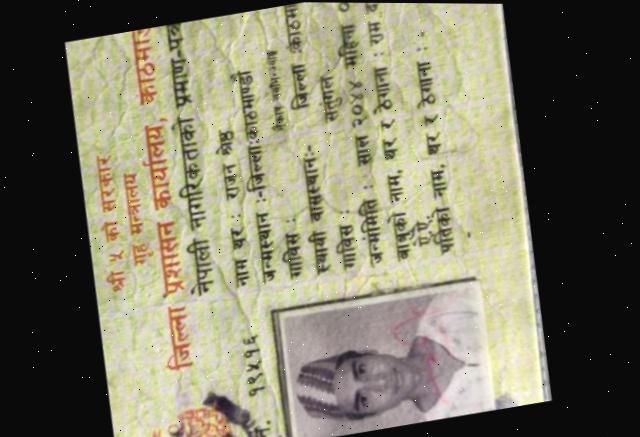 श्री ५ को सरकार
गृह मन्त्रालय
जिल्ला प्रशासन कार्यालय, काठमाडौं
नेपाली नागरिकताको प्रमाण-पत्र
नं. १९५१६
नाम थर : राजन श्रेष्ठ
जन्मस्थान :-जिल्ला:काठमाण्डौ
गाविस :
स्थायी वासस्थान:- जिल्ला काठमा
गाविस :
जन्ममिति : साल २०४४ महिना ०
बाबुको नाम, थर र ठेगाना : राम
पतिको नाम, थर र ठेगाना : -